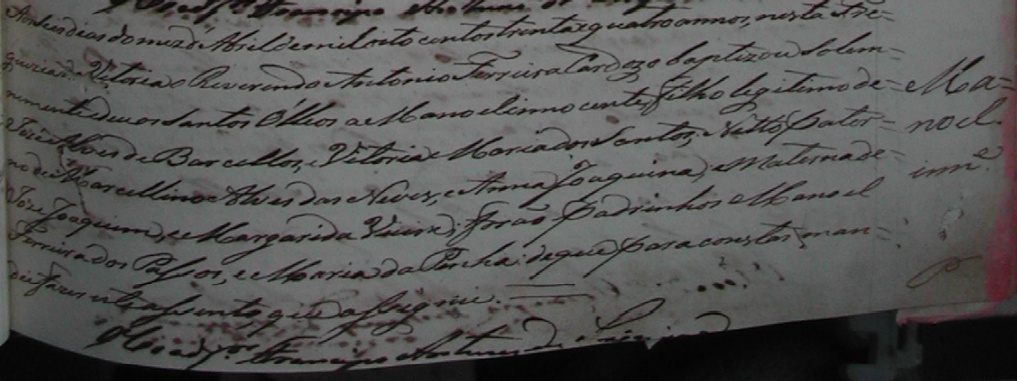 Francisco
Aos des dias do mez de Abril de mil oito centos trinta e quatro annos, nesta Fre=
guezia o Reverendo Antonio Ferreira Cardozo baptizou Solem=
nimente deu os Santos Olleos a Manoel innocente, filho legitimo de=
José Alves de Barcellos, e Vitoria Maria dos Santos, Netto pator=
no de Marcellino Alves das Neves, e Anna Joaquina, e Materna de=
José Joaquim, e Margarida Vieira; forão Padrinhos Manoel
Ferreira dos Passos, e Maria da Rocha: de que para constar man=
dei fazer este assento, que assignei.
Francisco
Ma=
noel
inn.e